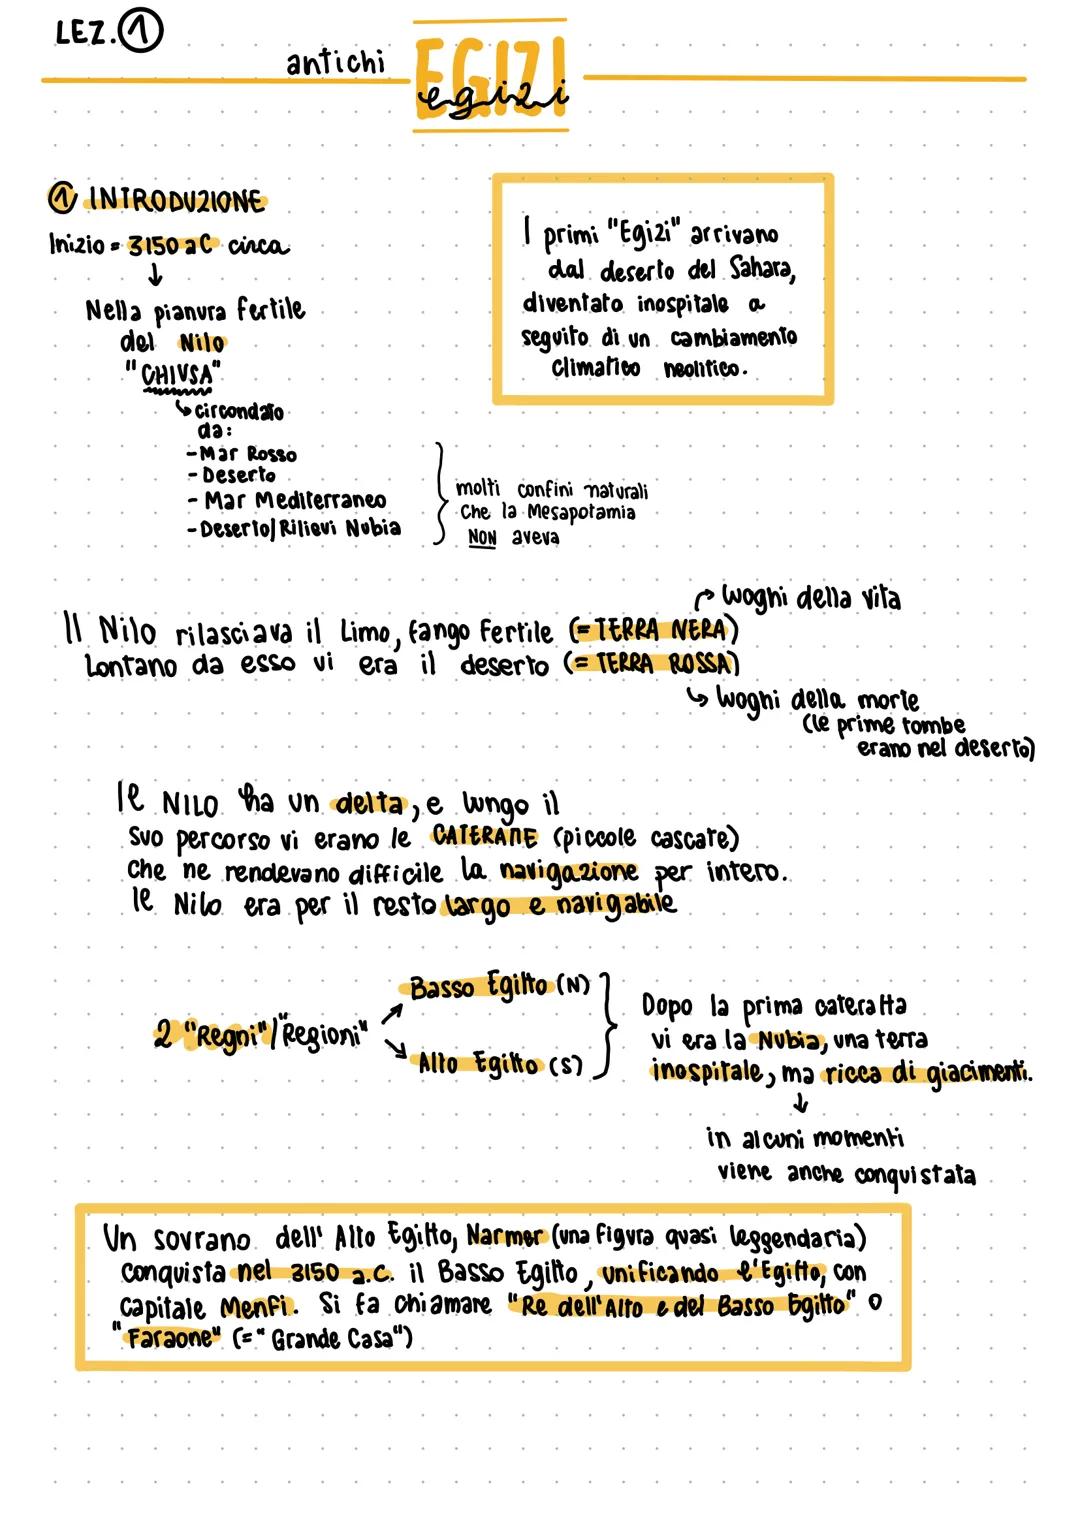 LEZ. 1
antichi EGIZI
egizi
1 INTRODUZIONE
Inizio = 3150 a C circa
↓
Nella pianura fertile
del Nilo
"CHIUSA"
↳ circondato
da:
- Mar Rosso
- Deserto
- Mar Mediterraneo
- Deserto/Rilievi Nubia
molti confini naturali
che la Mesapotamia
NON aveva
I primi "Egizi" arrivano
dal deserto del Sahara,
diventato inospitale a
seguito di un cambiamento
climatico neolitico.
luoghi della vita
Il Nilo rilasciava il Limo, fango fertile (= TERRA NERA)
Lontano da esso vi era il deserto (= TERRA ROSSA)
↳ luoghi della morte
(le prime tombe
erano nel deserto)
Il NILO ha un delta, e lungo il
suo percorso vi erano le CATERATTE (piccole cascate)
che ne rendevano difficile la navigazione per intero.
Il Nilo era per il resto largo e navigabile
2 "Regni"/"Regioni"
Basso Egitto (N)
Alto Egitto (S)
Dopo la prima cateratta
vi era la Nubia, una terra
inospitale, ma ricca di giacimenti.
↓
in alcuni momenti
viene anche conquistata
Un sovrano dell' Alto Egitto, Narmer (una figura quasi leggendaria)
conquista nel 3150 a.C. il Basso Egitto, unificando l'Egitto, con
capitale Menfi. Si fa chiamare "Re dell'Alto e del Basso Egitto" o
"Faraone" (= "Grande Casa")